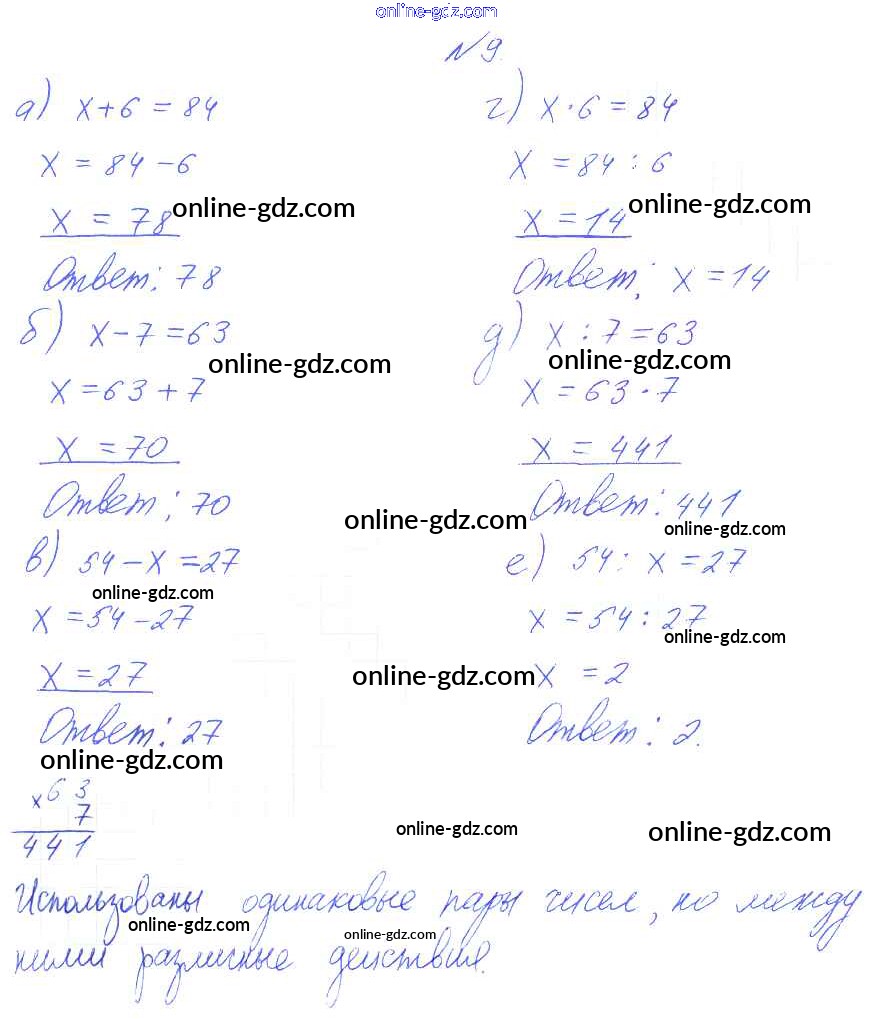 online-gdz.com
№9.
а) x+6=84
x = 84-6
x = 78
online-gdz.com
Ответ: 78
б) x-7=63
online-gdz.com
x=63+7
x = 70
Ответ: 70
в) 54-x=27
online-gdz.com
x=54-27
x=27
Ответ: 27
online-gdz.com
г) x·6=84
x = 84:6
online-gdz.com
x=14
Ответ: x=14
д) x:7=63
online-gdz.com
x = 63·7
x = 441
Ответ: 441
online-gdz.com
online-gdz.com
е) 54:x=27
x = 54:27
online-gdz.com
online-gdz.com
x = 2
Ответ: 2.
×63
7
441
online-gdz.com
online-gdz.com
Использованы одинаковые пары чисел, но между
online-gdz.com
online-gdz.com
ними различные действия.